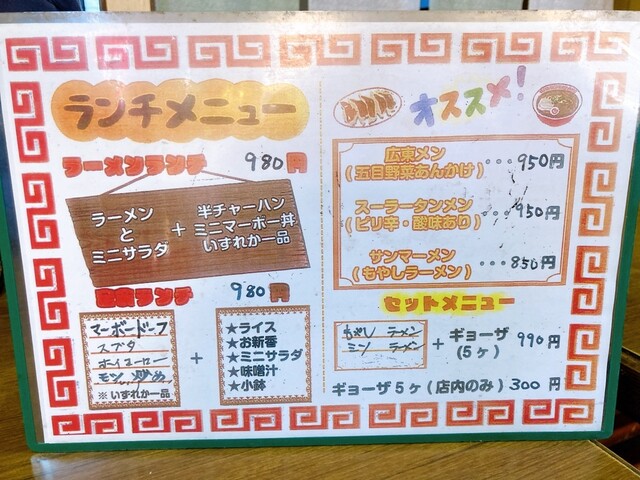 ランチメニュー
ラーメンランチ 980円
ラーメン
と
ミニサラダ
+
半チャーハン
ミニマーボー丼
いずれか一品
定食ランチ 980円
マーボードーフ
スブタ
ホイコーロー
モヤシ炒め
※いずれか一品
+
★ライス
★お新香
★ミニサラダ
★味噌汁
★小鉢
オススメ!
広東メン
(五目野菜あんかけ) ・・・950円
スーラータンメン
(ピリ辛・酸味あり) ・・・950円
サンマーメン
(もやしラーメン) ・・・850円
セットメニュー
もやし ラーメン
ミソ ラーメン
+ ギョーザ
(5ヶ)
990円
ギョーザ5ヶ(店内のみ) 300円